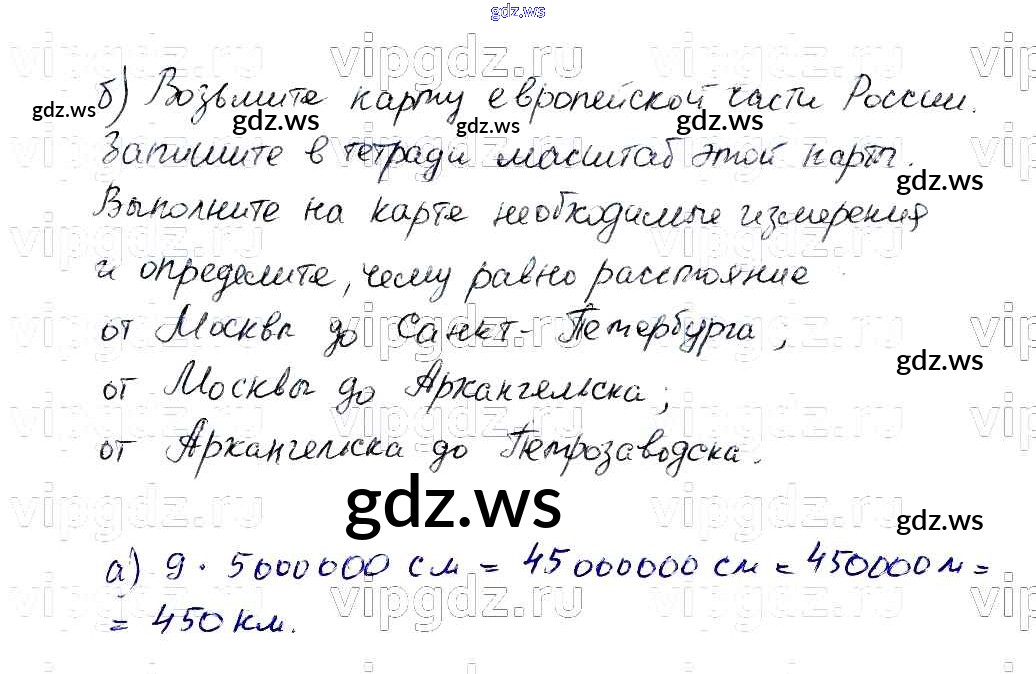 gdz.ws
vipgdz.ru vipgdz.ru vipgdz.ru
б) Возьмите карту европейской части России.
gdz.ws gdz.ws gdz.ws gdz.ws
Запишите в тетради масштаб этой карты.
gdz.ws
Выполните на карте необходимые измерения
и определите, чему равно расстояние
от Москвы до Санкт-Петербурга,
gdz.ws
от Москвы до Архангельска;
от Архангельска до Петрозаводска.
gdz.ws
gdz.ws
а) 9 · 5000000 см = 45000000 см = 450000 м =
= 450 км.